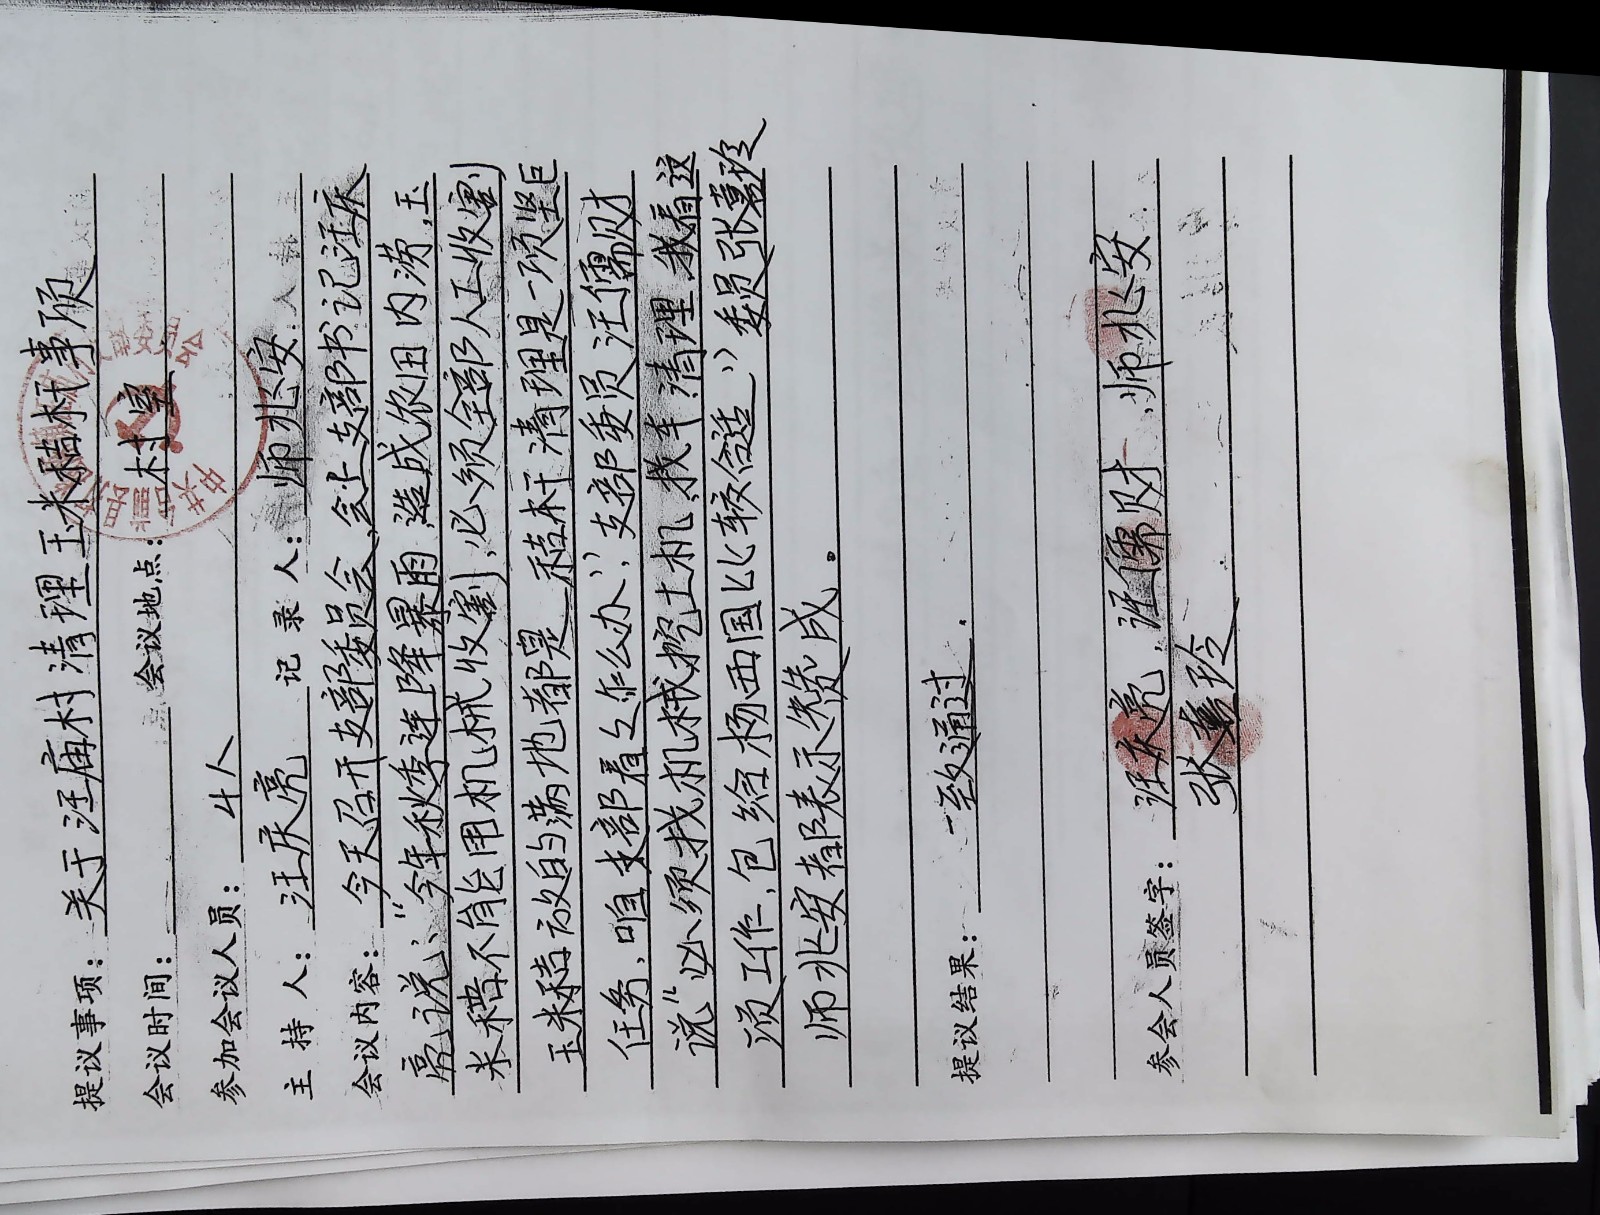 提议事项：关于汪庙村清理玉米秸秆事项
会议时间：会议地点：村室
参加会议人员：4人
主持人：汪庆亮 记录人：师兆安
会议内容：今天召开支部委员会,会上支部书记汪庆
亮说：“今年秋季连降暴雨,造成农田内涝,玉
米穑不能用机械收割,必须全部人工收割,
玉米秸放的满地都是,秸杆清理是一项坚巨
任务,咱支部看怎么办?,支部委员汪儒财
说“必须找机械挖土机,找车清理,我看这
项工作,包给杨西国比较合适,”委员张
师兆安都表示赞成。
提议结果：一致通过.
参会人员签字：汪庆亮、汪儒财、师兆安
张玲